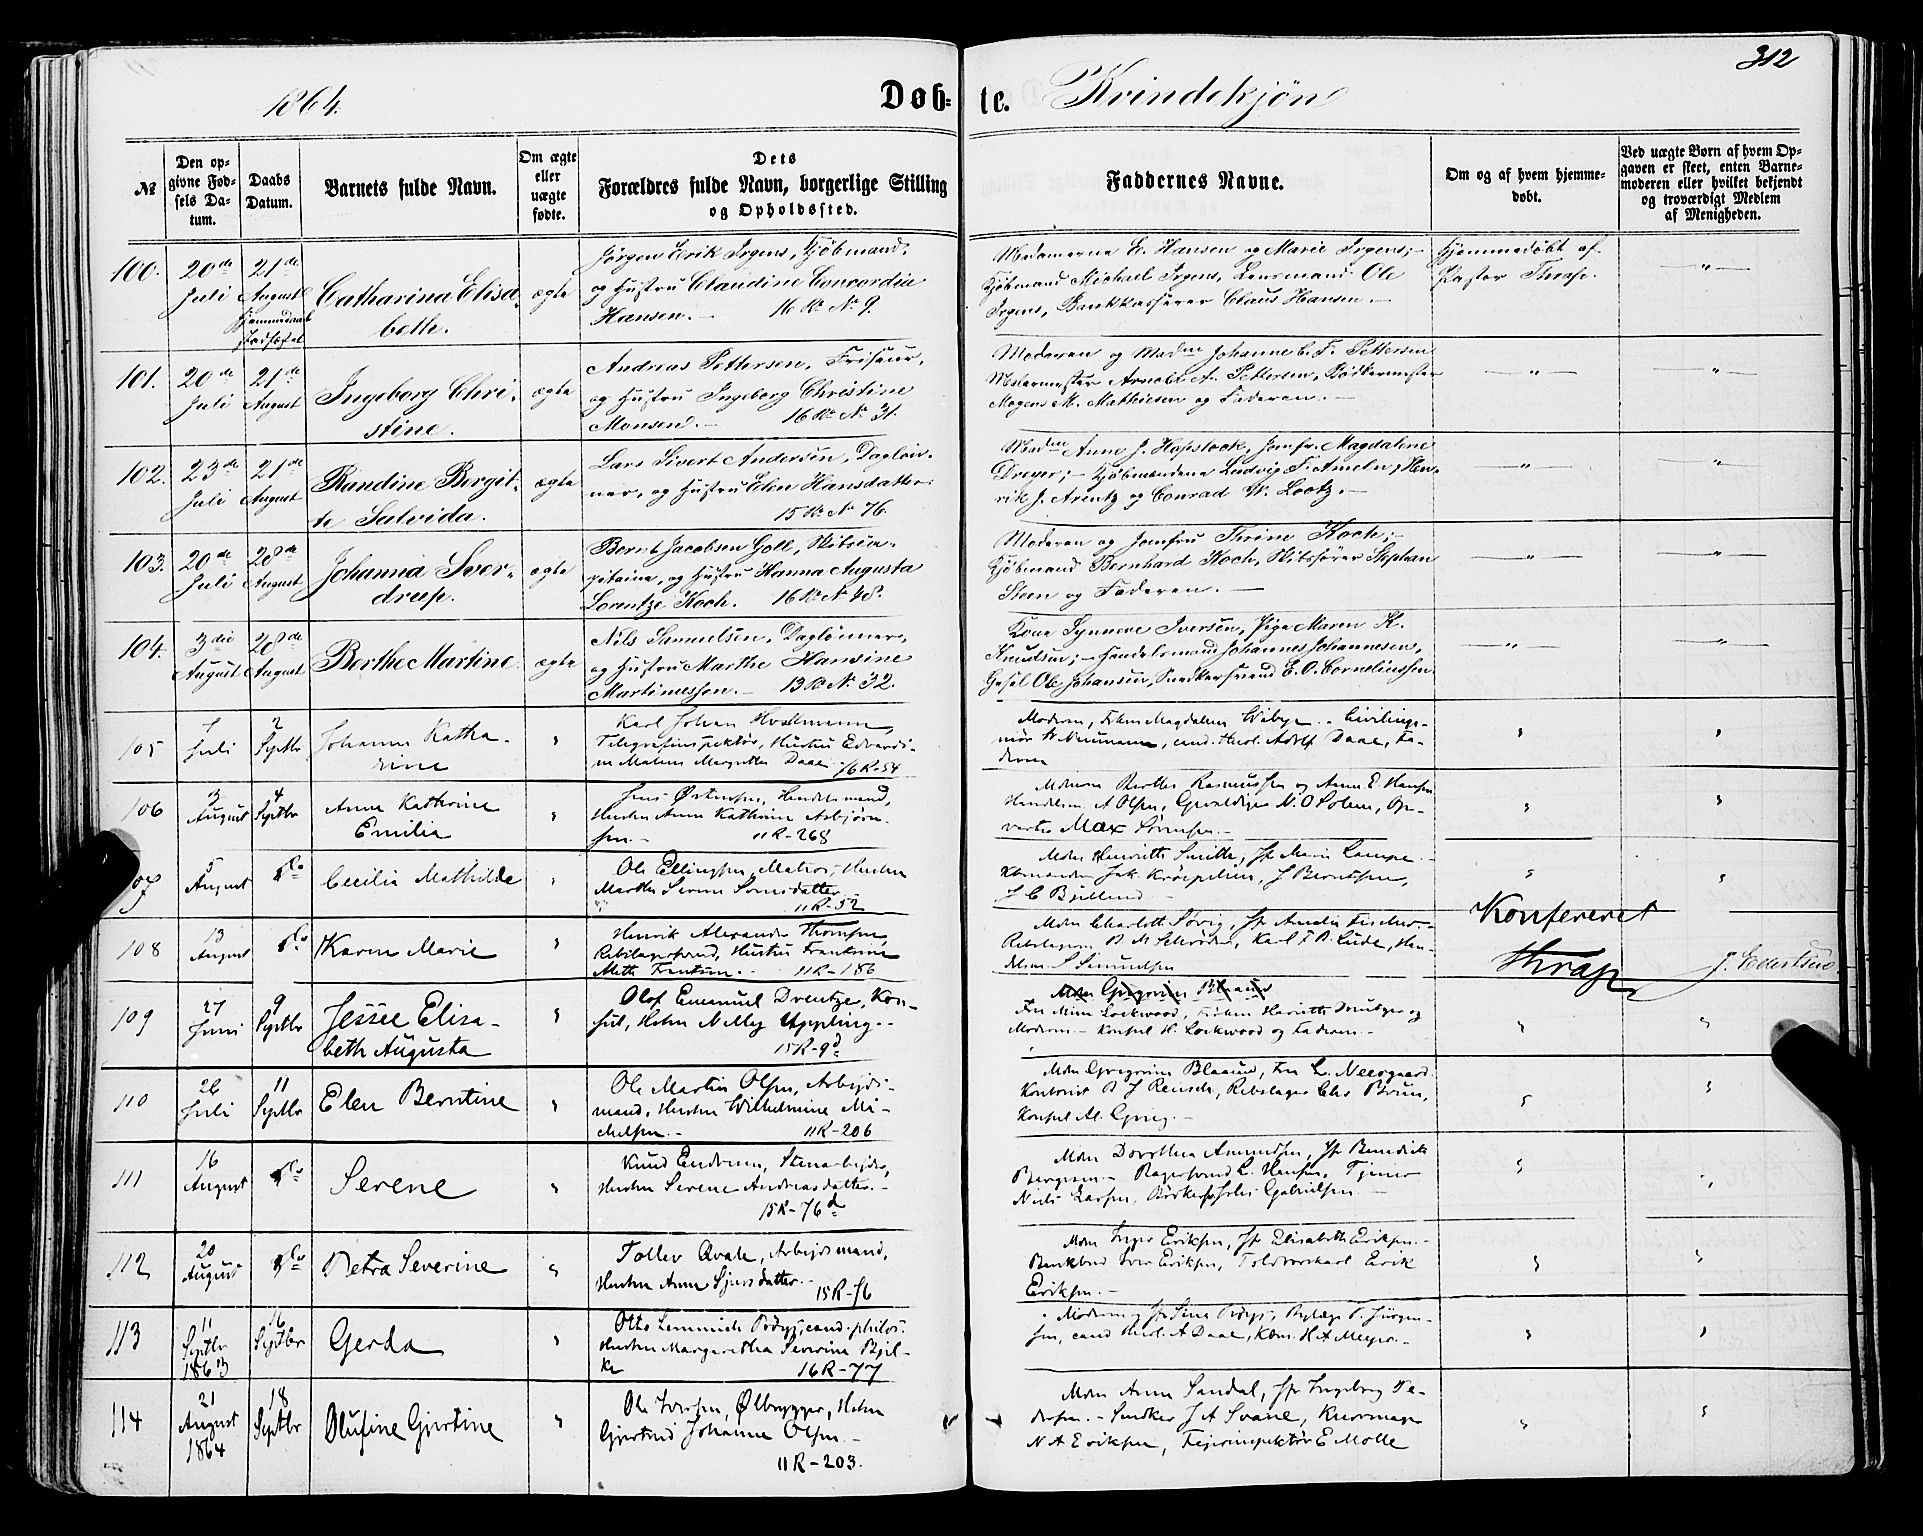 312
1864.
Døb-
te.
Kvindekjøn
№
Den op-
givne Fød-
sels Da-
tum.
Daabs
Datum.
Barnets fulde Navn.
Om ægte
eller
uægte
fødte.
Dets
Forældres fulde Navn, borgerlige Stilling
og Opholdssted.
Faddernes Navne.
Om og af hvem hjemme-
døbt.
Ved uægte Børn af hvem Op-
gaven er skeet, enten Barne-
moderen eller hvilket bekjendt
og troværdigt Medlem
af Menigheden.
100.
20de
Juli
21de
August
Catharina Elisa-
beth.
ægte
Jørgen Erik Irgens, Kjøbmand
og Hustru Claudine Concordia
Hansen. — 16 R. № 9.
Madamerne E. Hansen og Marie Irgens;—
Kjøbmand Michael Irgens, Lensmand Ole
Irgens, Bankkasserer Claus Hansen. —
Hjemmedøbt af
Pastor Thrap.
— " —
101.
20de
Juli
21de
August
Ingeborg Chri-
stine.
ægte
Andreas Pettersen, Friseur,
og Hustru Ingeborg Christine
Monsen. — 16 R. № 31.
Moderen og Madme Johanne C. F. Pettersen
Malermester Arnold A. Pettersen, Bødkermester
Mogens M. Mathiesen og Faderen. —
— " —
— " —
102.
23de
Juli
21de
August
Randine Birgit-
te Salvida.
ægte
Lars Sivert Andersen, Dagløn-
ner, og Hustru Elen Hansdatter
15 R. № 76.
Madme Anne J. Hopstock, Jomfr. Magdalene
Dreyer;— Kjøbmændene Ludvig F. Ameln, Hen-
rik J. Arentz og Conrad W. Lootz.—
— " —
— " —
103.
20de
Juli
28de
August
Johanna Sver-
drup.
ægte
Bernt Jacobsen Goll, Skibsca-
pitaine, og Hustru Hanna Augusta
Lorentze Koch. 16 R. № 48.
Moderen og Jomfru Thrine Koch;—
Kjøbmand Bernhard Koch, Skibsfører Stephan
Steen og Faderen. —
— " —
— " —
104.
3die
August
28de
August
Berthe Martine.
ægte
Nils Samuelsen, Daglønner,
og Hustru Marthe Hansine
Martinussen. — 13 R. № 32.
Kone Synneve Iversen, Pige Maren K.
Knudsen;— Handelsmand Johannes Johannesen,
Gesel Ole Johansen, Snedkersvend E. O. Corneliussen
— " —
— " —
105
7
Juli
2
Septbr
Johanne Katha-
rine
"
Karl Johan
Telegrafinspektør, Hustru Edvardi-
ne Malene Margrethe Daae 16 R-54
Moderen, Frøken Magdalena Wibye.. Civilinge-
niør W Neumann, cand. theol. Adolf Daae, Fa-
deren
"
"
106
3
August
4
Septbr
Anna Kathrine
Emilia
"
Jens Østensen, Handelsmand,
Hustru Anne Kathrine Asbjørn-
sen.— 11 R-268
Moderen Berthe Rasmussen og Anne E Hansen
Handelsm A Olsen, N. O Solem, Op-
varter Max Sørensen.—
"
"
107
5
August
do
Cecilia Mathilde
"
Ole Ellingsen, Matros, Hustru
Marthe Serine datter
11 R-52
Mdm Henriette Smitth, Jfr Marie Lampe.
J Berntsen,
J C Bjelland
"
"
108
13
August
do
Karen Marie
"
Henrik Alexander Thomsen,
Rebslagersvend, Hustru Frantzine
Mette Frantzen.. 11 R-186
Mdm Charlotte Sørig, Jfr Amalie Fischer.—
Rebslagerm B M Schrøder, Karl F B Lude, Han-
delsm. S Simundsen
Konfereret
Thrap
J. Ellertsen
109
27
Juni
9
Septbr
Jessie Elisa-
beth Augusta
"
Olof Emanuel Drentze, Kon-
sul, Hustru Nelly Uppling..
15 R-9d
Mdm Gregorine Blaauw
Fru Mina Lockwood, Frøken Henriette og
Moderen.— Konsul H. Lockwood og Faderen.—
"
"
110
26
Juli
11
Septbr
Elen Berntine
"
Ole Martin Olsen, Arbejds-
mand, Hustru Wilhelmine Mi-
chelsen.— 11 R-206
Mdm Gregorine Blaauw, Fru L. Neergaard.
Kontorist B J Reusch, Rebslager Chs Brun,
Konsul Al. Grieg.—
"
"
111
16
August
do
Serene
"
Knud Endresen, Stenarbejder,
Hustru Serene Andreasdatter.—
15 R-76d
Mdm Dorothea Amundsen, Jfr Benedicte
Bergesen.— Bagersvend L. Hansen, Tjener
Niels Larsen, Gabrielsen.—
"
"
112
20
August
do
Petra Severine
"
Tollev Qvale, Arbejdsmand,
Hustru Anne Sjursdatter.—
15 R-76
Mdm Inger Eriksen, Jfr Elisabeth Eriksen.—
Bankbud Iver Eriksen, Toldvorkarl Eirik
Eriksen.—
"
"
113
11
Septbr
1863
16
Septbr
Gerda
"
Otto Lemmich , cand. philos.
Hustru Margaretha Severine Bjel-
ke 16 R-77
Moderen, Jfr Sina , P. Jürgen-
sen, cand theol. A Daae, Kbm. H A Meyer.—
"
"
114
21
August
1864
18
Septbr
Olufine Gjertine
"
Ole Iversen, Ølbrygger, Hustru
Gjertrud Johanne Olsen.—
11 R-203.
Mdm Anne Sandal, Jfr Ingeborg Pe-
dersen.— Snedker J A Svane, Knormager
N A Eriksen, Fejerinspektør E Molle
"
"